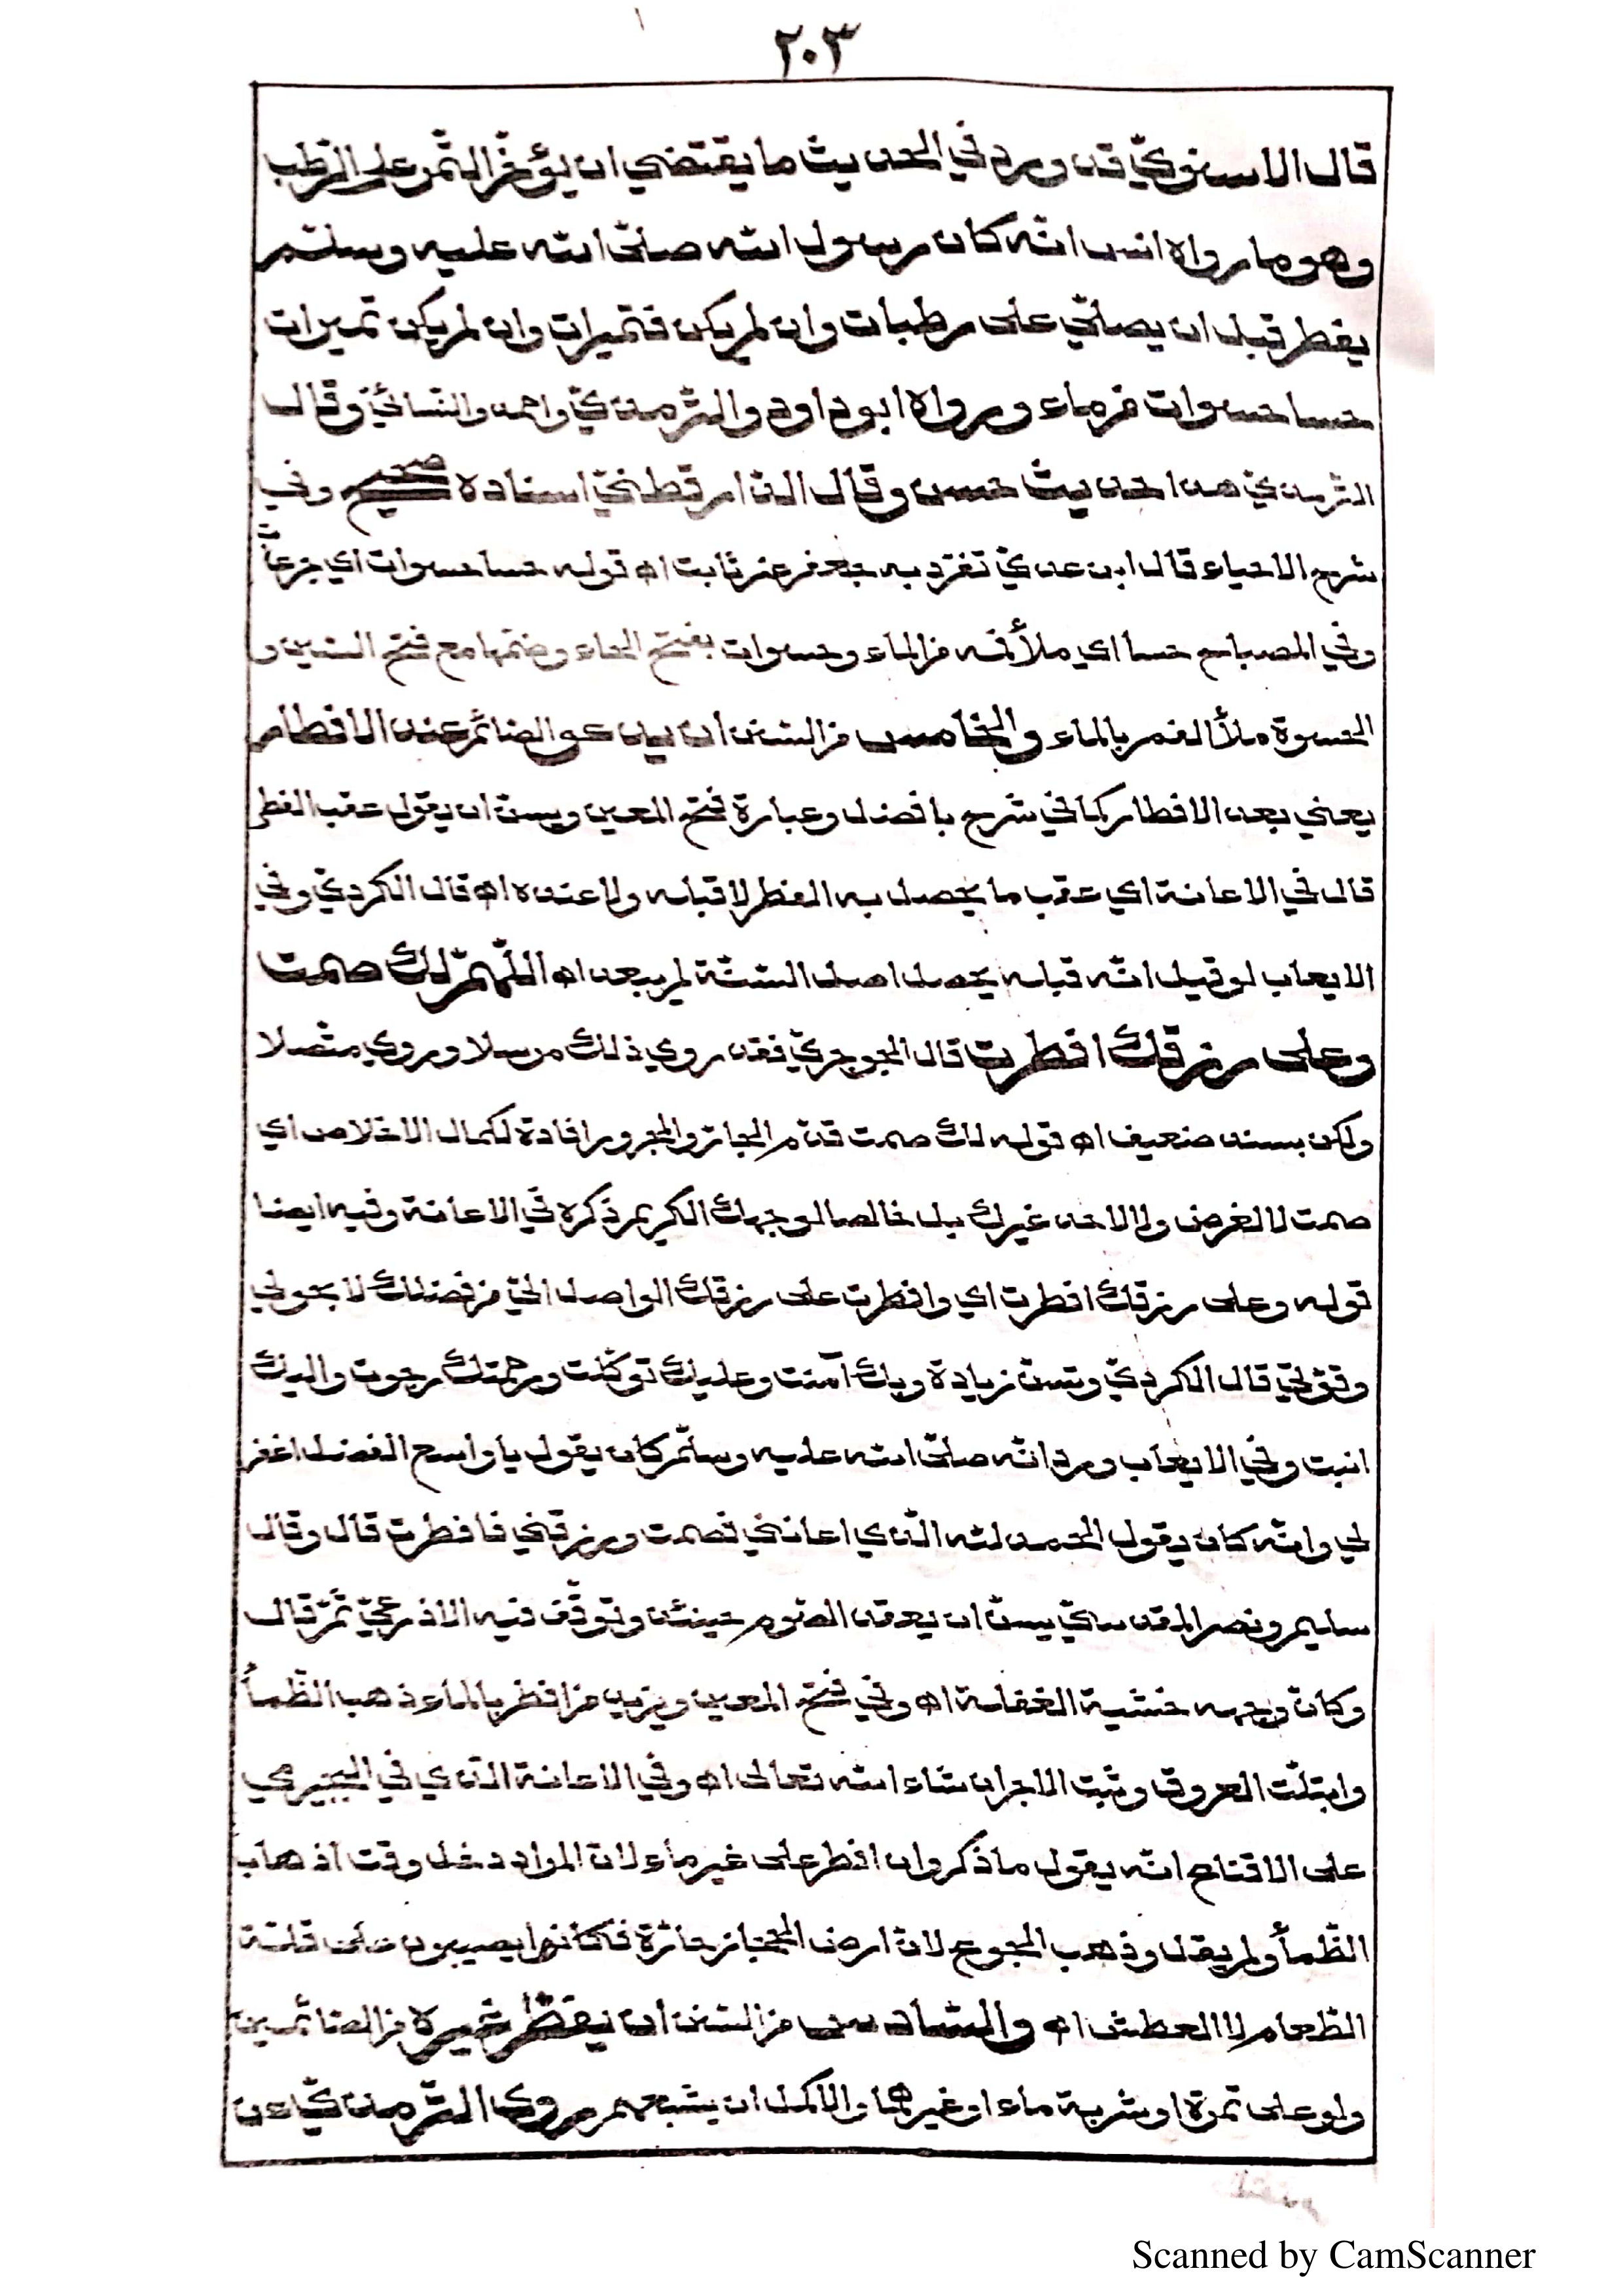 ٢٠٣
قال الاسنويّ قد ورد في الحديث ما يقتضي ان يؤخّر التّمر على الرّطب
وهو ما رواه انس انّه كان رسول اللّه صلّى اللّه عليه وسلّم
يفطر قبل ان يصلّي على رطبات وان لم يكن فتميرات وان لم يكن تميرات
حسا حسوات من ماء ورواه ابو داود والتّرمذيّ واحمد والنّسائيّ وقال
التّرمذيّ هذا حديث حسن وقال الدّارقطنيّ اسناده صحيح وفي
شرح الاحياء قال ابن عديّ تفرّد به جعفر عن ثابت اه قوله حسا حسوات اي جرعات
وفي المصباح حسا اي ملأ فمه من الماء وحسوات بفتح الحاء وضمّها مع فتح السّين و
الحسوة ملأ الفم بالماء والخامس من السّنن ان يدعو الصّائم عند الافطار
يعني بعد الافطار كما في شرح بافضل وعبارة فتح المعين ويسنّ ان يقول عقب الفطر
قال في الاعانة اي عقب ما يحصل به الفطر لا قبله ولا عنده اه قال الكرديّ وفي
الايعاب لو قيل انّه قبله يحصل اصل السّنّة لم يبعد اه اللّهمّ لك صمت
وعلى رزقك افطرت قال الجوجريّ فقد روي ذلك مرسلا وروي متّصلا
ولكن بسند ضعيف اه قوله لك صمت قدّم الجارّ والمجرور افادة لكمال الاخلاص اي
صمت لا لغرض ولا لاحد غيرك بل خالصا لوجهك الكريم ذكره في الاعانة وفيه ايضا
قوله وعلى رزقك افطرت اي وافطرت على رزقك الواصل اليّ من فضلك لا بحولي
وقوّتي قال الكرديّ وتسنّ زيادة وبك آمنت وعليك توكّلت ورحمتك رجوت واليك
انبت وفي الايعاب ورد انّه صلّى اللّه عليه وسلّم كان يقول يا واسع الفضل اغفر
لي وانّه كان يقول الحمد للّه الّذي اعانني فصمت ورزقني فافطرت قال وقال
سليم ونصر المقدسيّ يسنّ ان يعقد الصّوم حينئذ وتوقّف فيه الاذرعيّ ثمّ قال
وكانّ وجهه خشية الغفلة اه وفي فتح المعين ويزيد من افطر بالماء ذهب الظّمأ
وابتلّت العروق وثبت الاجر ان شاء اللّه تعالى اه وفي الاعانة الّذي في البجيرمي
على الاقناع انّه يقول ما ذكر وان افطر على غير ماء لانّ المراد دخل وقت اذهاب
الظّمأ ولم يقل وذهب الجوع لانّ ارض الحجاز حارّة فكانوا يصيرون على قلّة
الطّعام لا العطش اه والسّادس من السّنن ان يفطّر غيره من الصّائمين
ولو على تمرة او شربة ماء او غيرهما والاكمل ان يشبعهم روى التّرمذيّ عن
Scanned by CamScanner